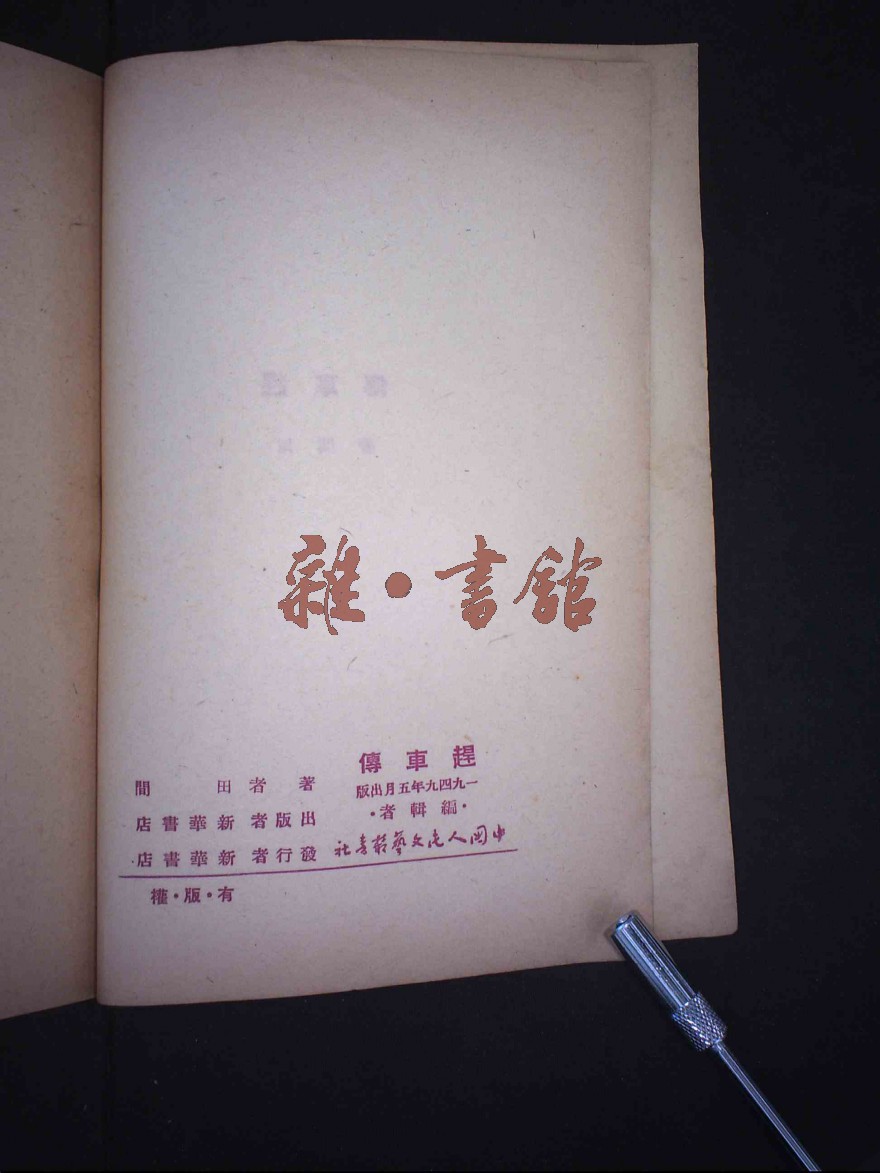 雜·書館
趕車傳
一九四九年五月出版
·編輯者·
中国人民文藝叢書社
著者 田間
出版者 新華書店
發行者 新華書店
有·版·權